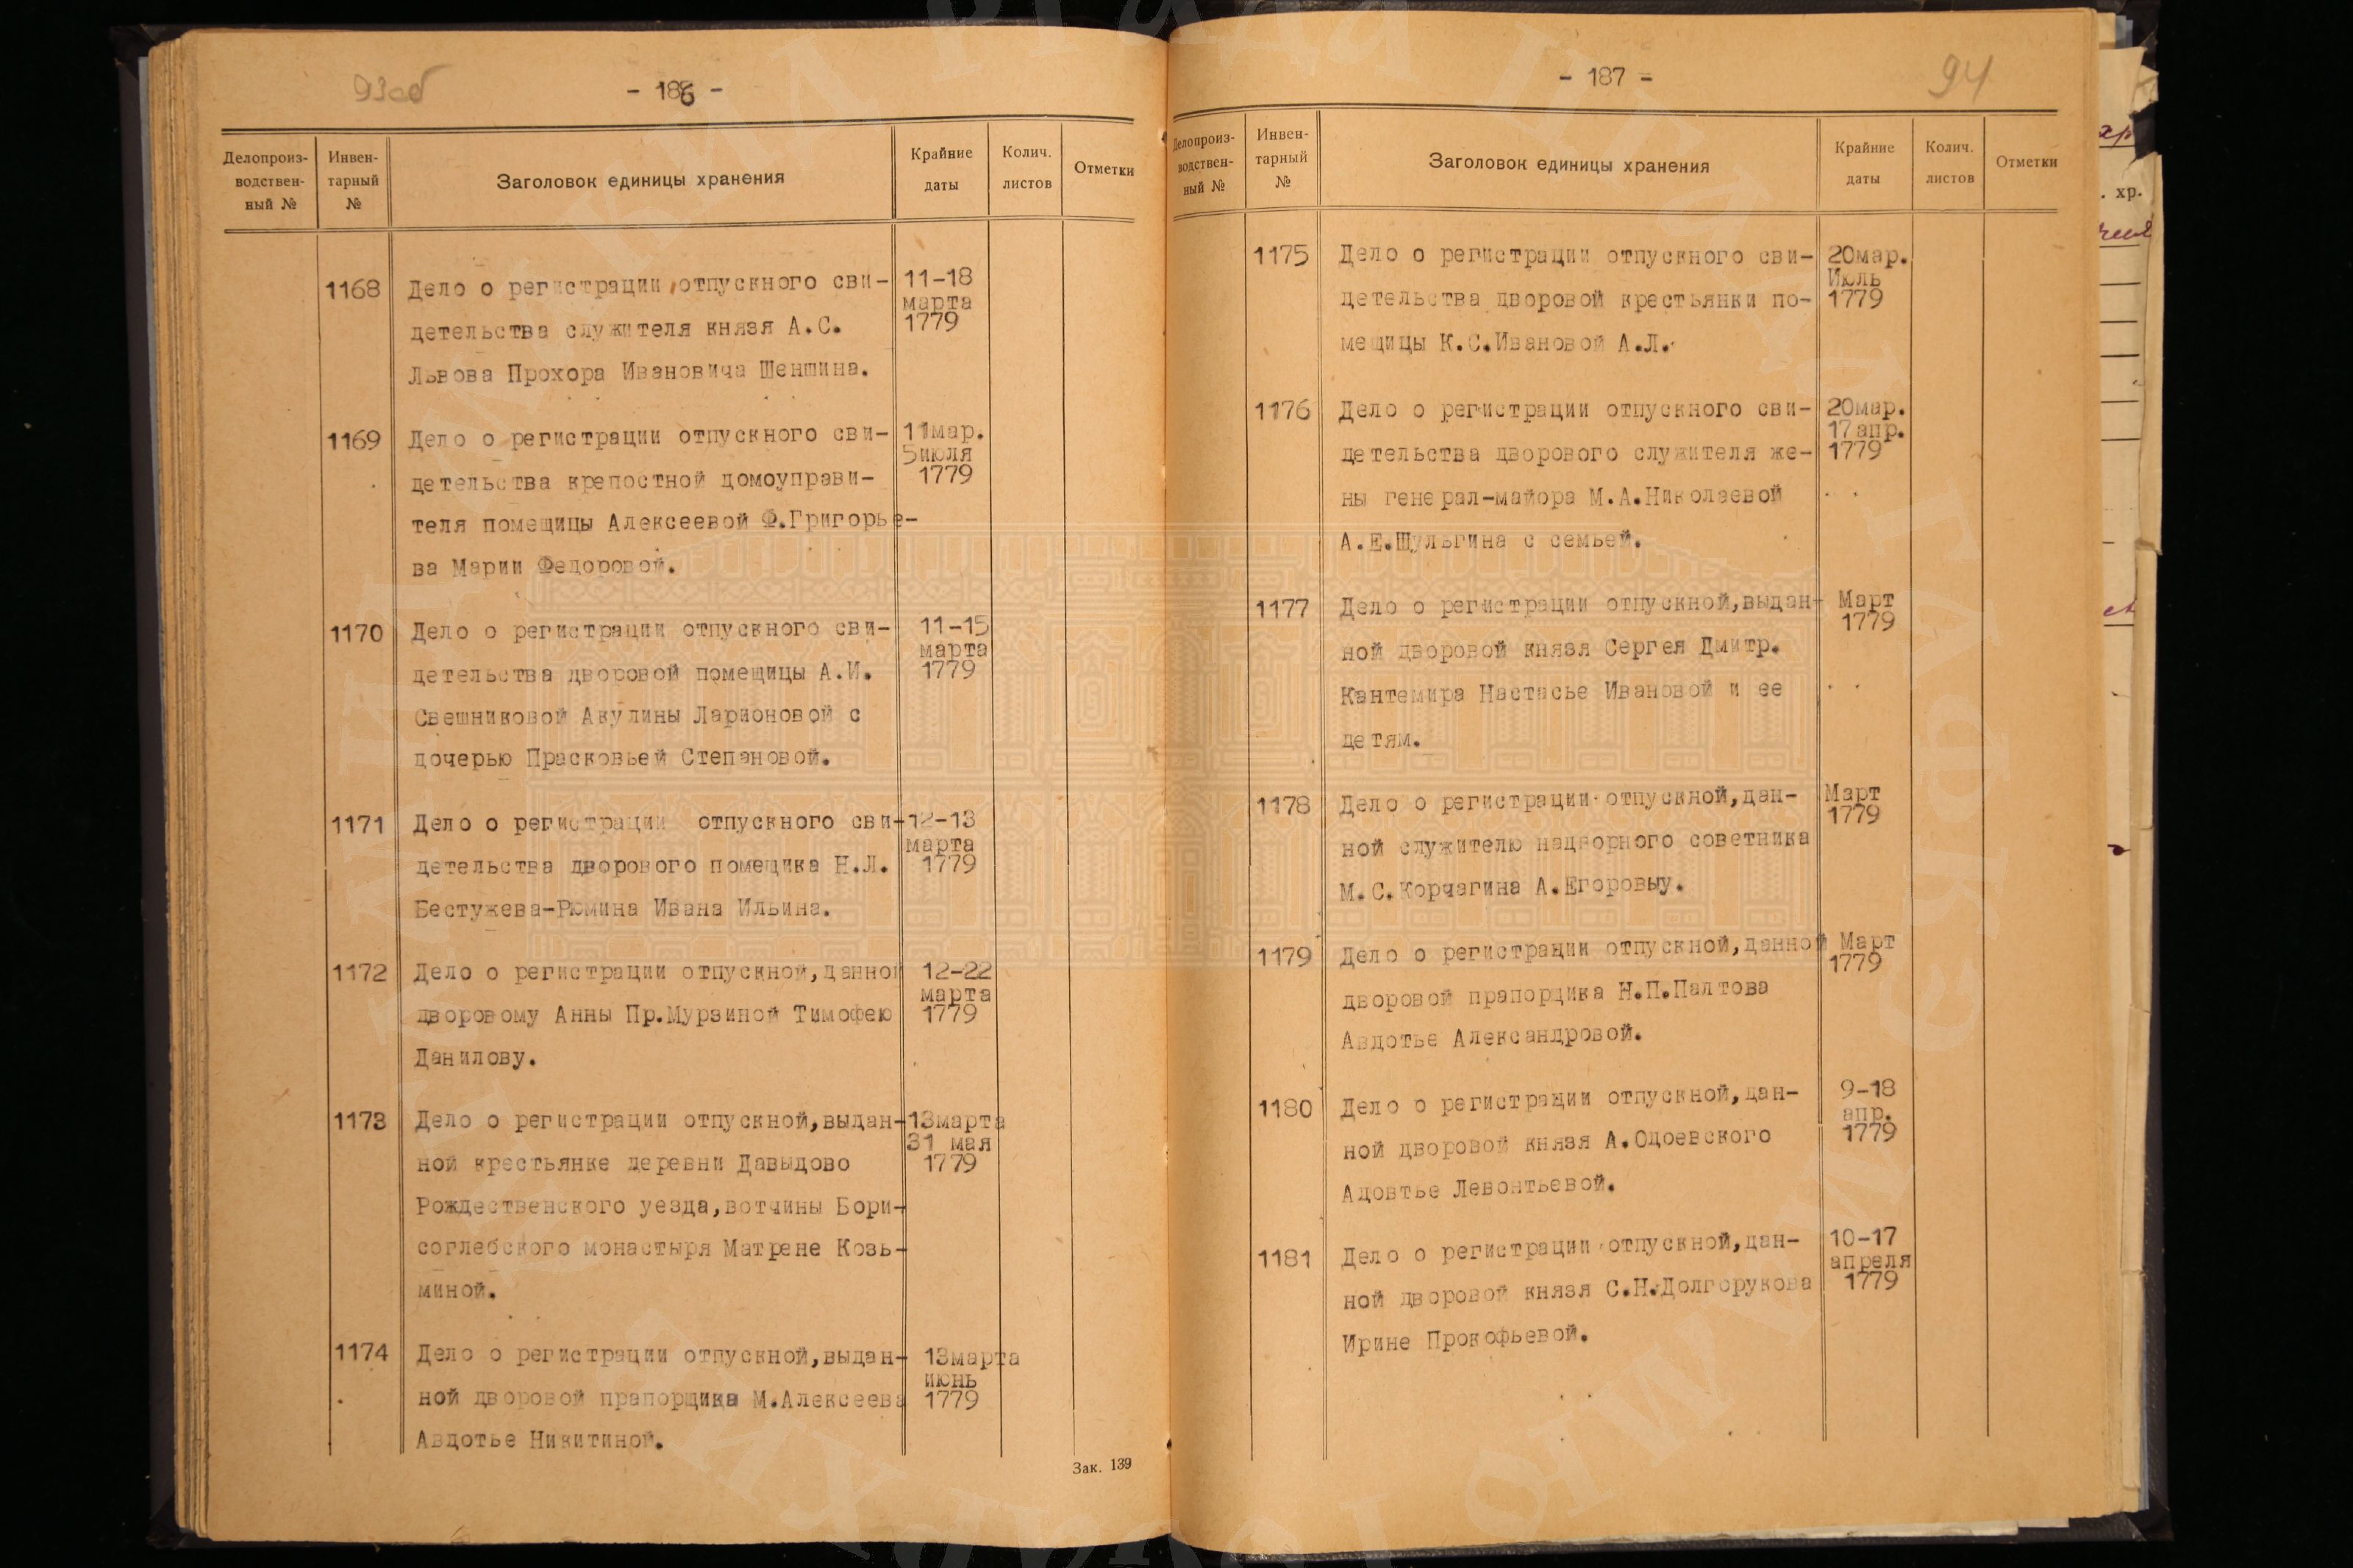 93об
- 186 -
Делопроиз-
водствен-
ный №
Инвен-
тарный
№
Заголовок единицы хранения
Крайние
даты
Колич.
листов
Отметки
1168 Дело о регистрации отпускного сви- 11-18
марта
детельства служителя князя А.С. 1779
Львова Прохора Ивановича Шеншина.
1169 Дело о регистрации отпускного сви- 11мар.
5июля
детельства крепостной домоуправи- 1779
теля помещицы Алексеевой Ф.Григорье-
ва Марии Федоровой.
1170 Дело о регистрации отпускного сви- 11-15
марта
детельства дворовой помещицы А.И. 1779
Свешниковой Акулины Ларионовой с
дочерью Прасковьей Степановой.
1171 Дело о регистрации отпускного сви- 12-13
марта
детельства дворового помещика Н.Л. 1779
Бестужева-Рюмина Ивана Ильина.
1172 Дело о регистрации отпускной,данной 12-22
марта
дворовому Анны Пр.Мурзиной Тимофею 1779
Данилову.
1173 Дело о регистрации отпускной,выдан- 13марта
31 мая
ной крестьянке деревни Давыдово 1779
Рождественского уезда,вотчины Бори-
соглебского монастыря Матрене Козь-
миной.
1174 Дело о регистрации отпускной,выдан- 13марта
июнь
ной дворовой прапорщика М.Алексеева 1779
Авдотье Никитиной.
Зак. 139
- 187 -
94
Делопроиз-
водствен-
ный №
Инвен-
тарный
№
Заголовок единицы хранения
Крайние
даты
Колич.
листов
Отметки
1175 Дело о регистрации отпускного сви- 20мар.
Июль
детельства дворовой крестьянки по- 1779
мещицы К.С.Ивановой А.Л.
1176 Дело о регистрации отпускного сви- 20мар.
17апр.
детельства дворового служителя же- 1779
ны генерал-майора М.А.Николаевой
А.Е.Шульгина с семьей.
1177 Дело о регистрации отпускной,выдан- Март
1779
ной дворовой князя Сергея Дмитр.
Кантемира Настасье Ивановой и ее
детям.
1178 Дело о регистрации отпускной,дан- Март
1779
ной служителю надворного советника
М.С.Корчагина А.Егоровыу.
1179 Дело о регистрации отпускной,данной Март
1779
дворовой прапорщика Н.П.Палтова
Авдотье Александровой.
1180 Дело о регистрации отпускной,дан- 9-18
апр.
ной дворовой князя А.Одоевского 1779
Адовтье Левонтьевой.
1181 Дело о регистрации отпускной,дан- 10-17
апреля
ной дворовой князя С.Н.Долгорукова 1779
Ирине Прокофьевой.
. хр.